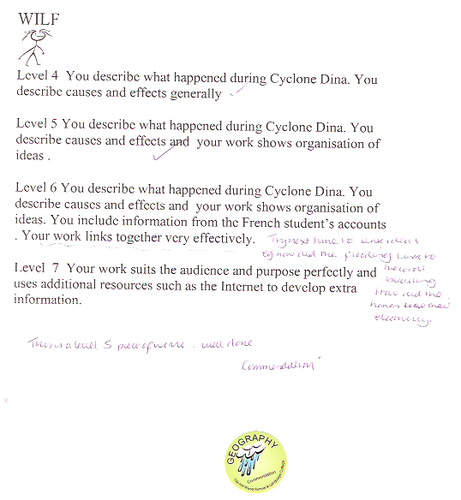 WILF
Level 4 You describe what happened during Cyclone Dina. You
describe causes and effects generally
Level 5 You describe what happened during Cyclone Dina. You
describe causes and effects and your work shows organisation of
ideas .
Level 6 You describe what happened during Cyclone Dina. You
describe causes and effects and your work shows organisation of
ideas. You include information from the French student's accounts
. Your work links together very effectively.
Try next time to link ideas
eg how did the flooding lead to
the wall
breaking
How did the
homes lose their
electricity.
Level 7 Your work suits the audience and purpose perfectly and
uses additional resources such as the Internet to develop extra
information.
This is a level 5 piece of work. well done
Commendation
GEOGRAPHY
Commendation